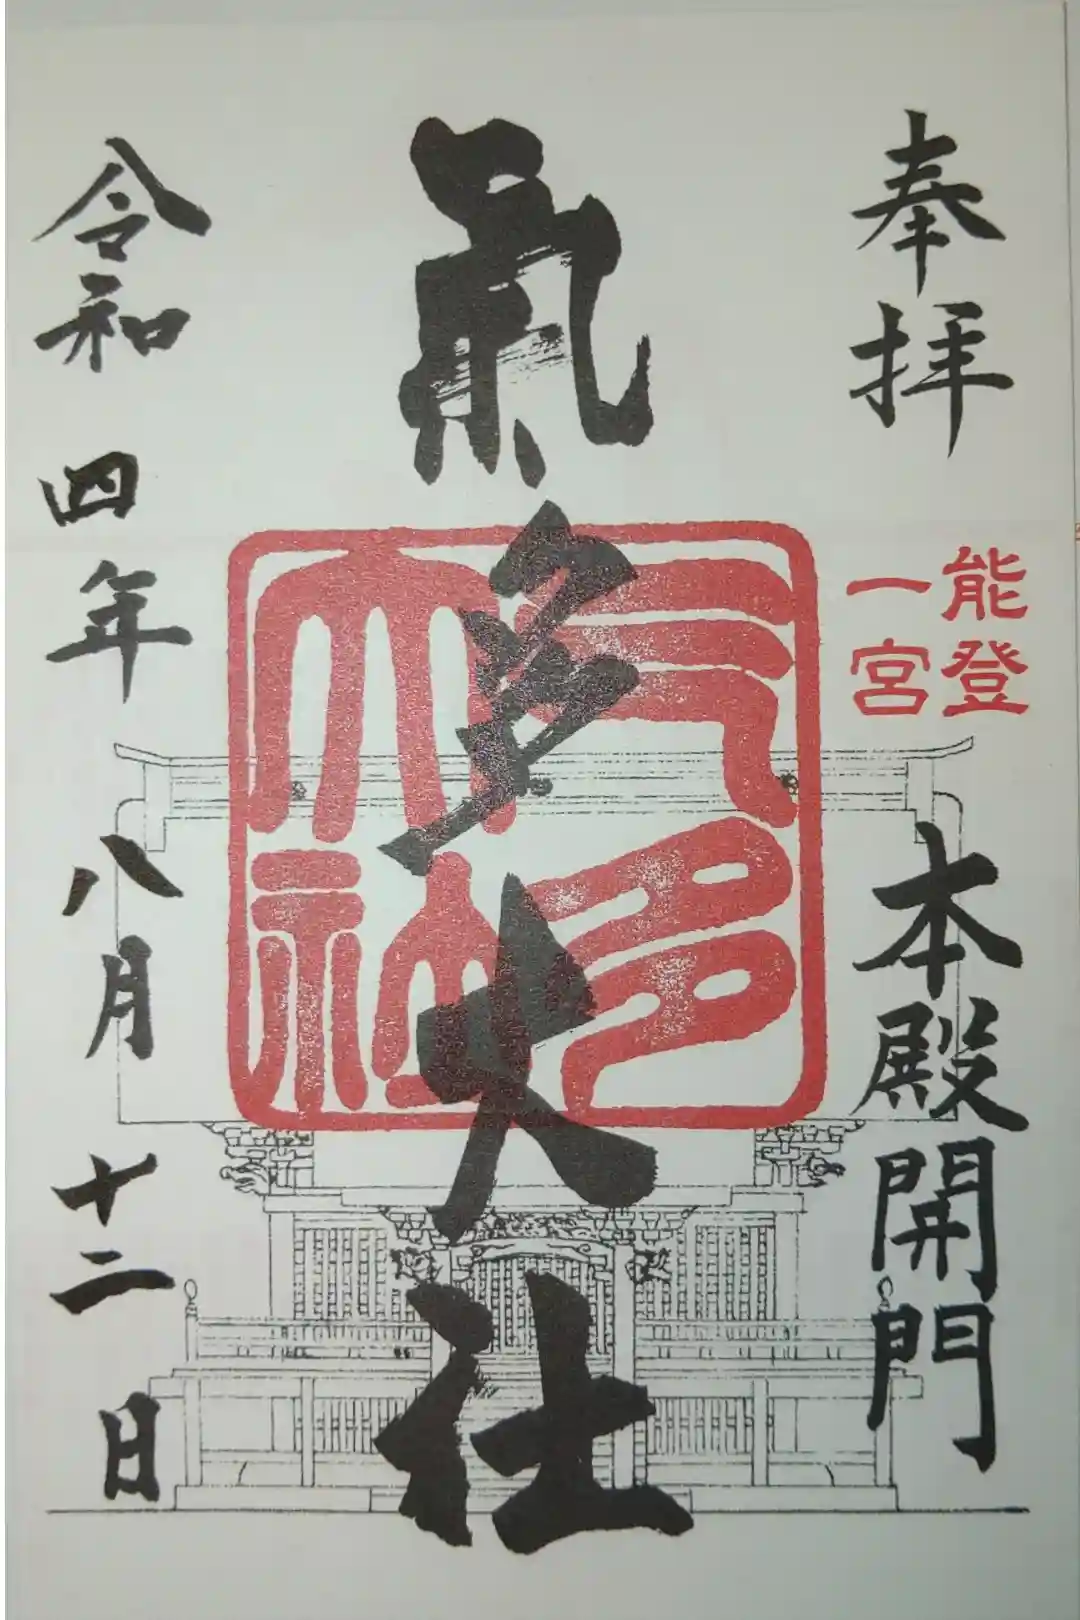 奉拝
能登
一宮
本殿開門
氣多大社
気多
大社
令和四年八月十二日